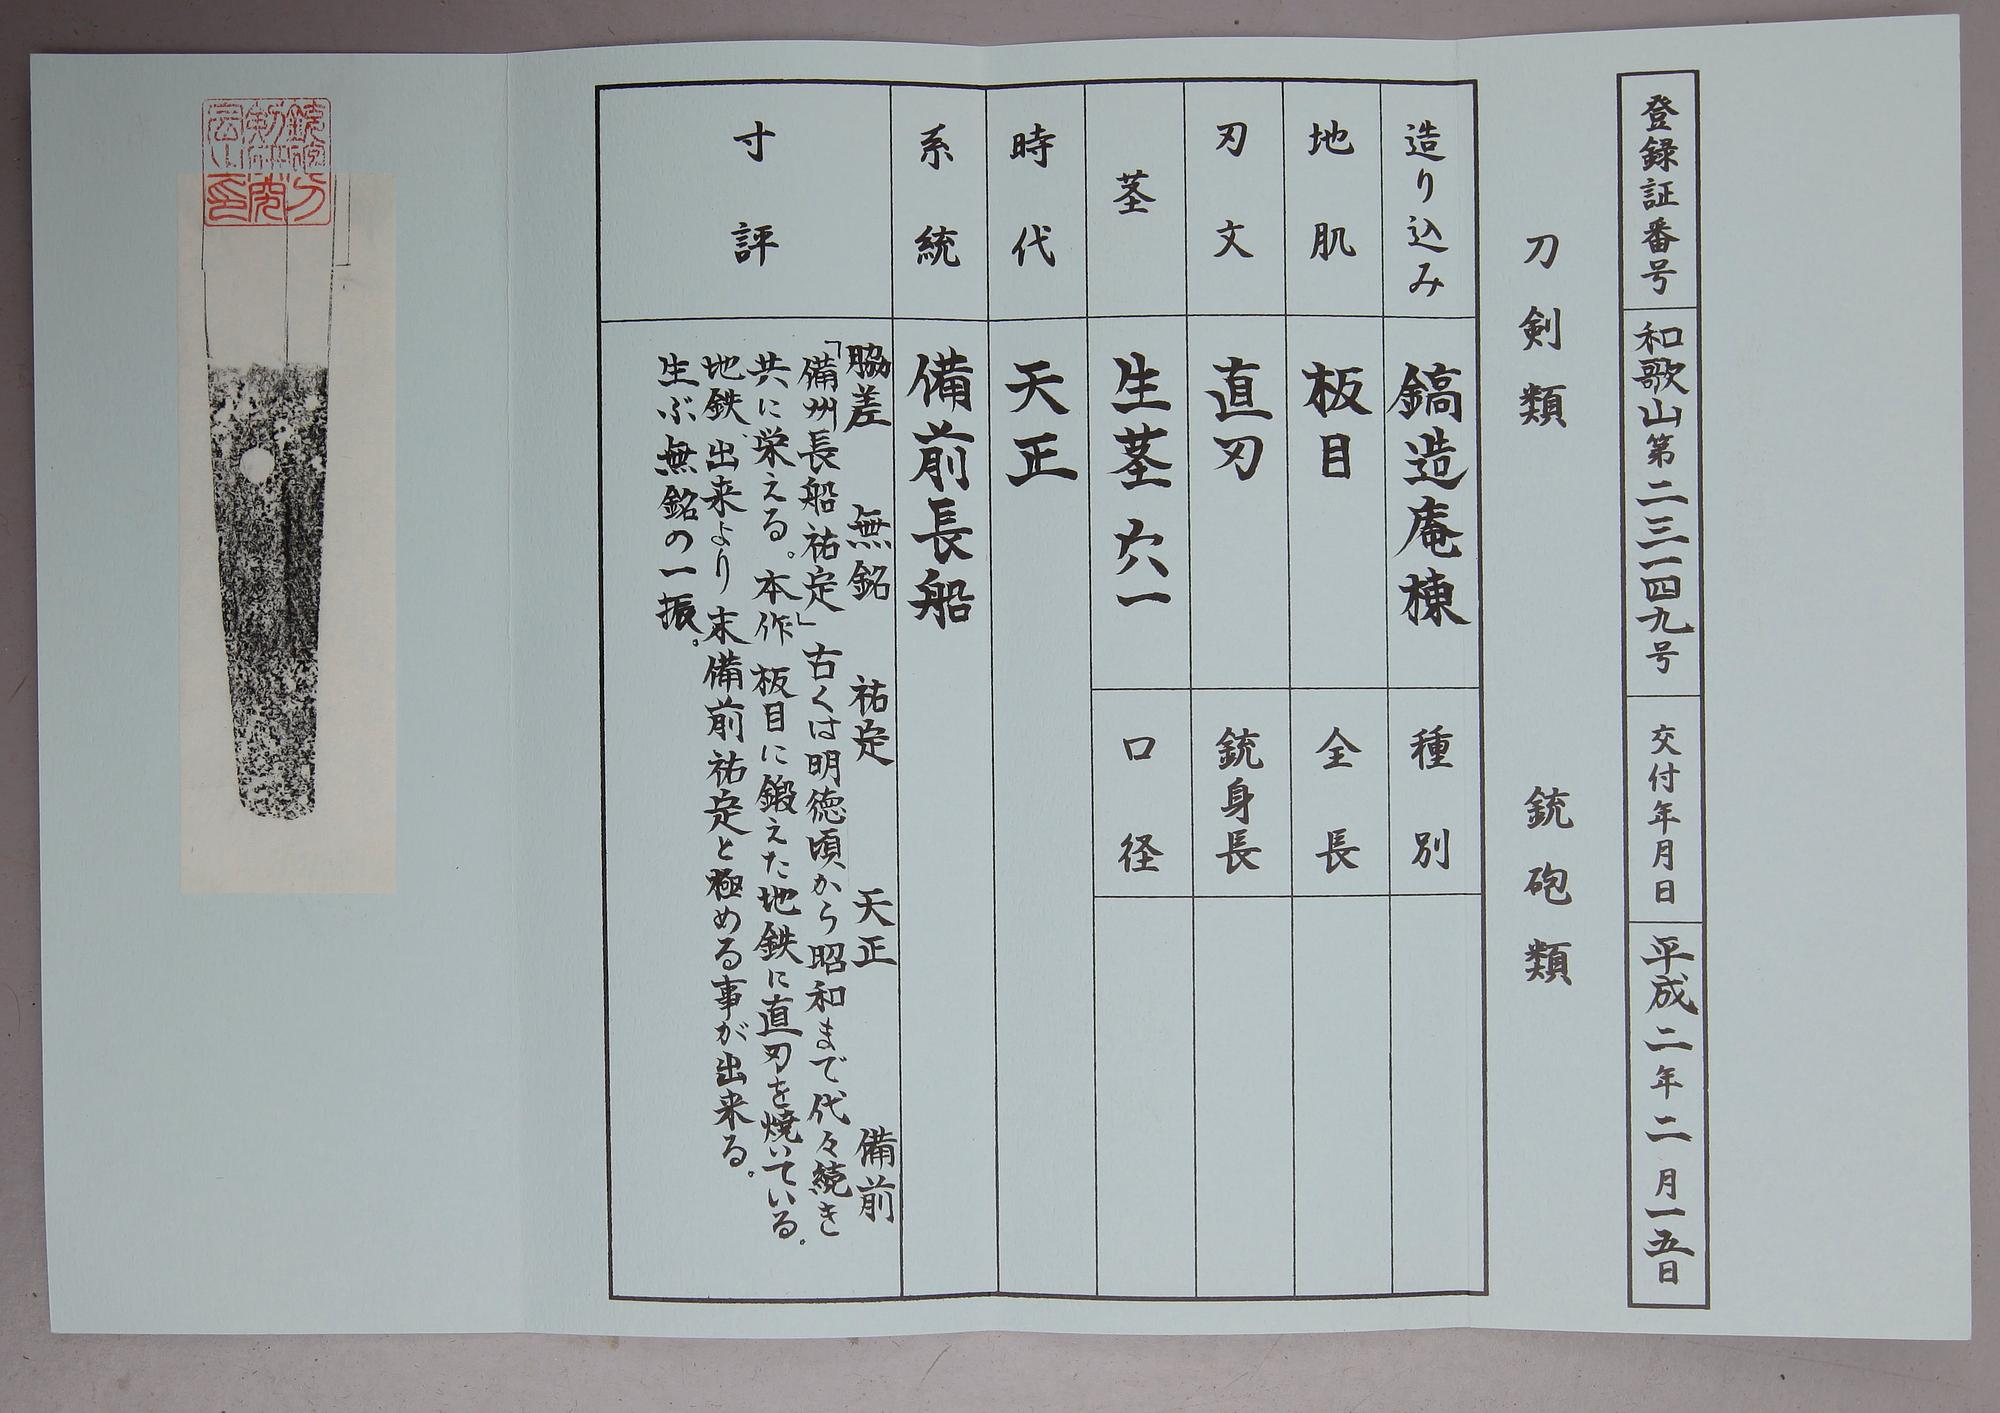 登録証番号 和歌山第二三一四九号 交付年月日 平成二年二月一五日
刀剣類 銃砲類
造り込み 鎬造庵棟 種別
地肌 板目 全長
刃文 直刃 銃身長
茎 生茎 穴一 口径
時代 天正
系統 備前長船
寸評
脇差 無銘 祐定 天正 備前
「備州長船祐定」古くは明徳頃から昭和まで代々続き
共に栄える。本作 板目に鍛えた地鉄に直刃を焼いている。
地鉄、出来より末備前祐定と極める事が出来る。
生ぶ無銘の一振。